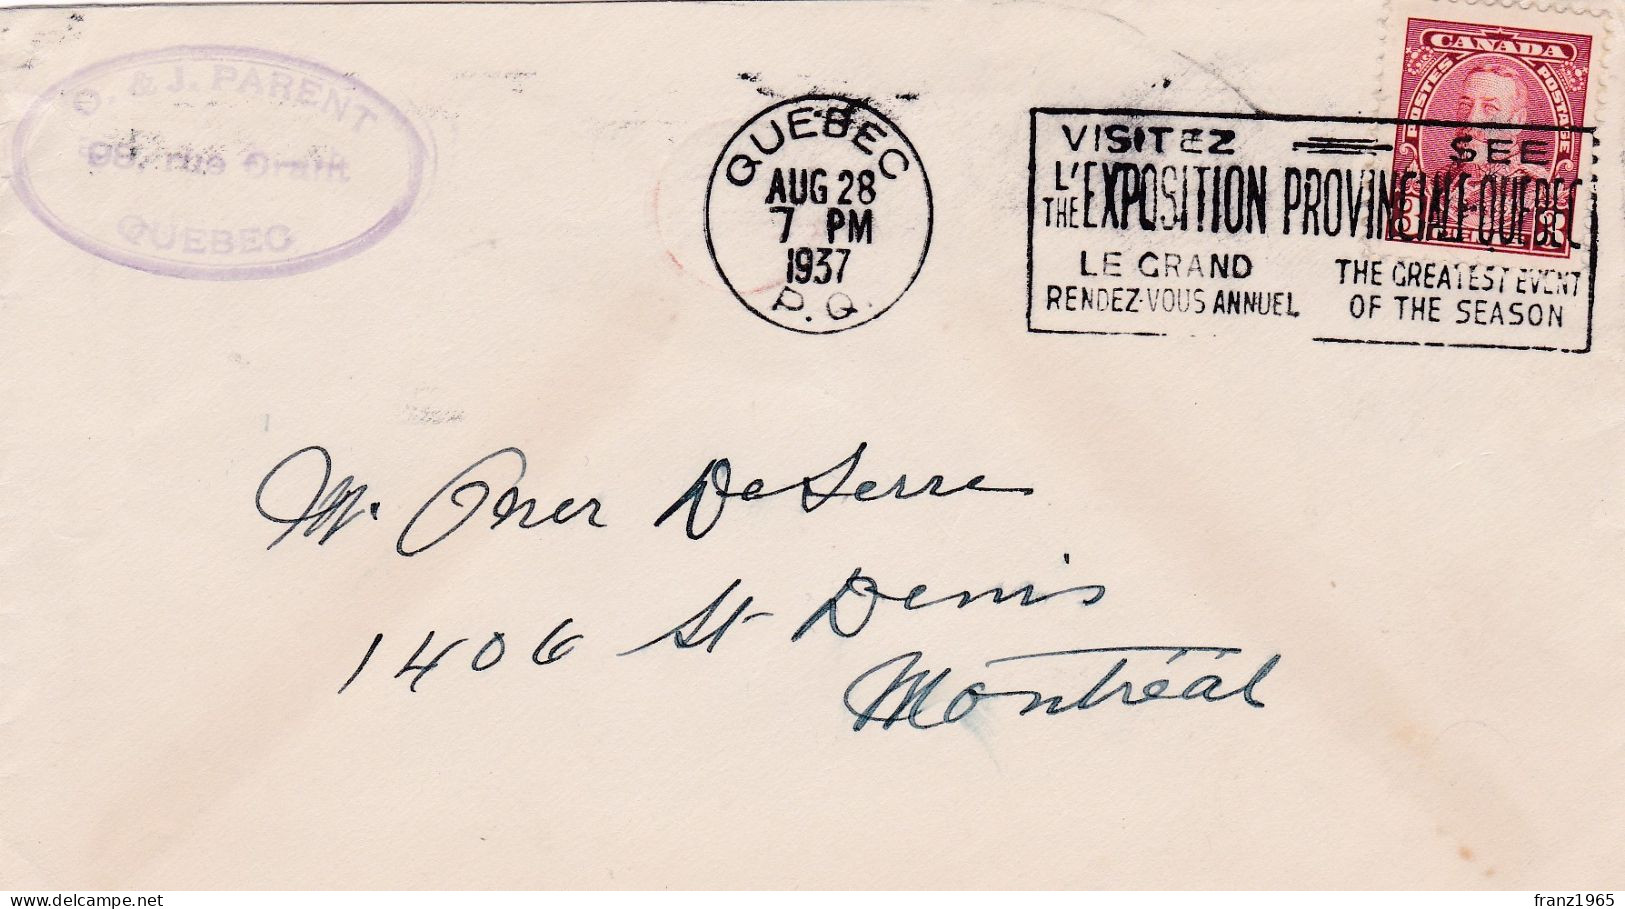 & J. PARENT
rue Grant
QUEBEC
QUEBEC
AUG 28
7 PM
1937
P.Q.
CANADA
POSTES POSTAGE
3 3
VISITEZ SEE
L'
THE EXPOSITION PROVINCIALE-QUEBEC
LE GRAND
RENDEZ-VOUS ANNUEL
THE GREATEST EVENT
OF THE SEASON
M. Omer DeSerre
1406 St Denis
Montréal
delcampe.net
franz1965